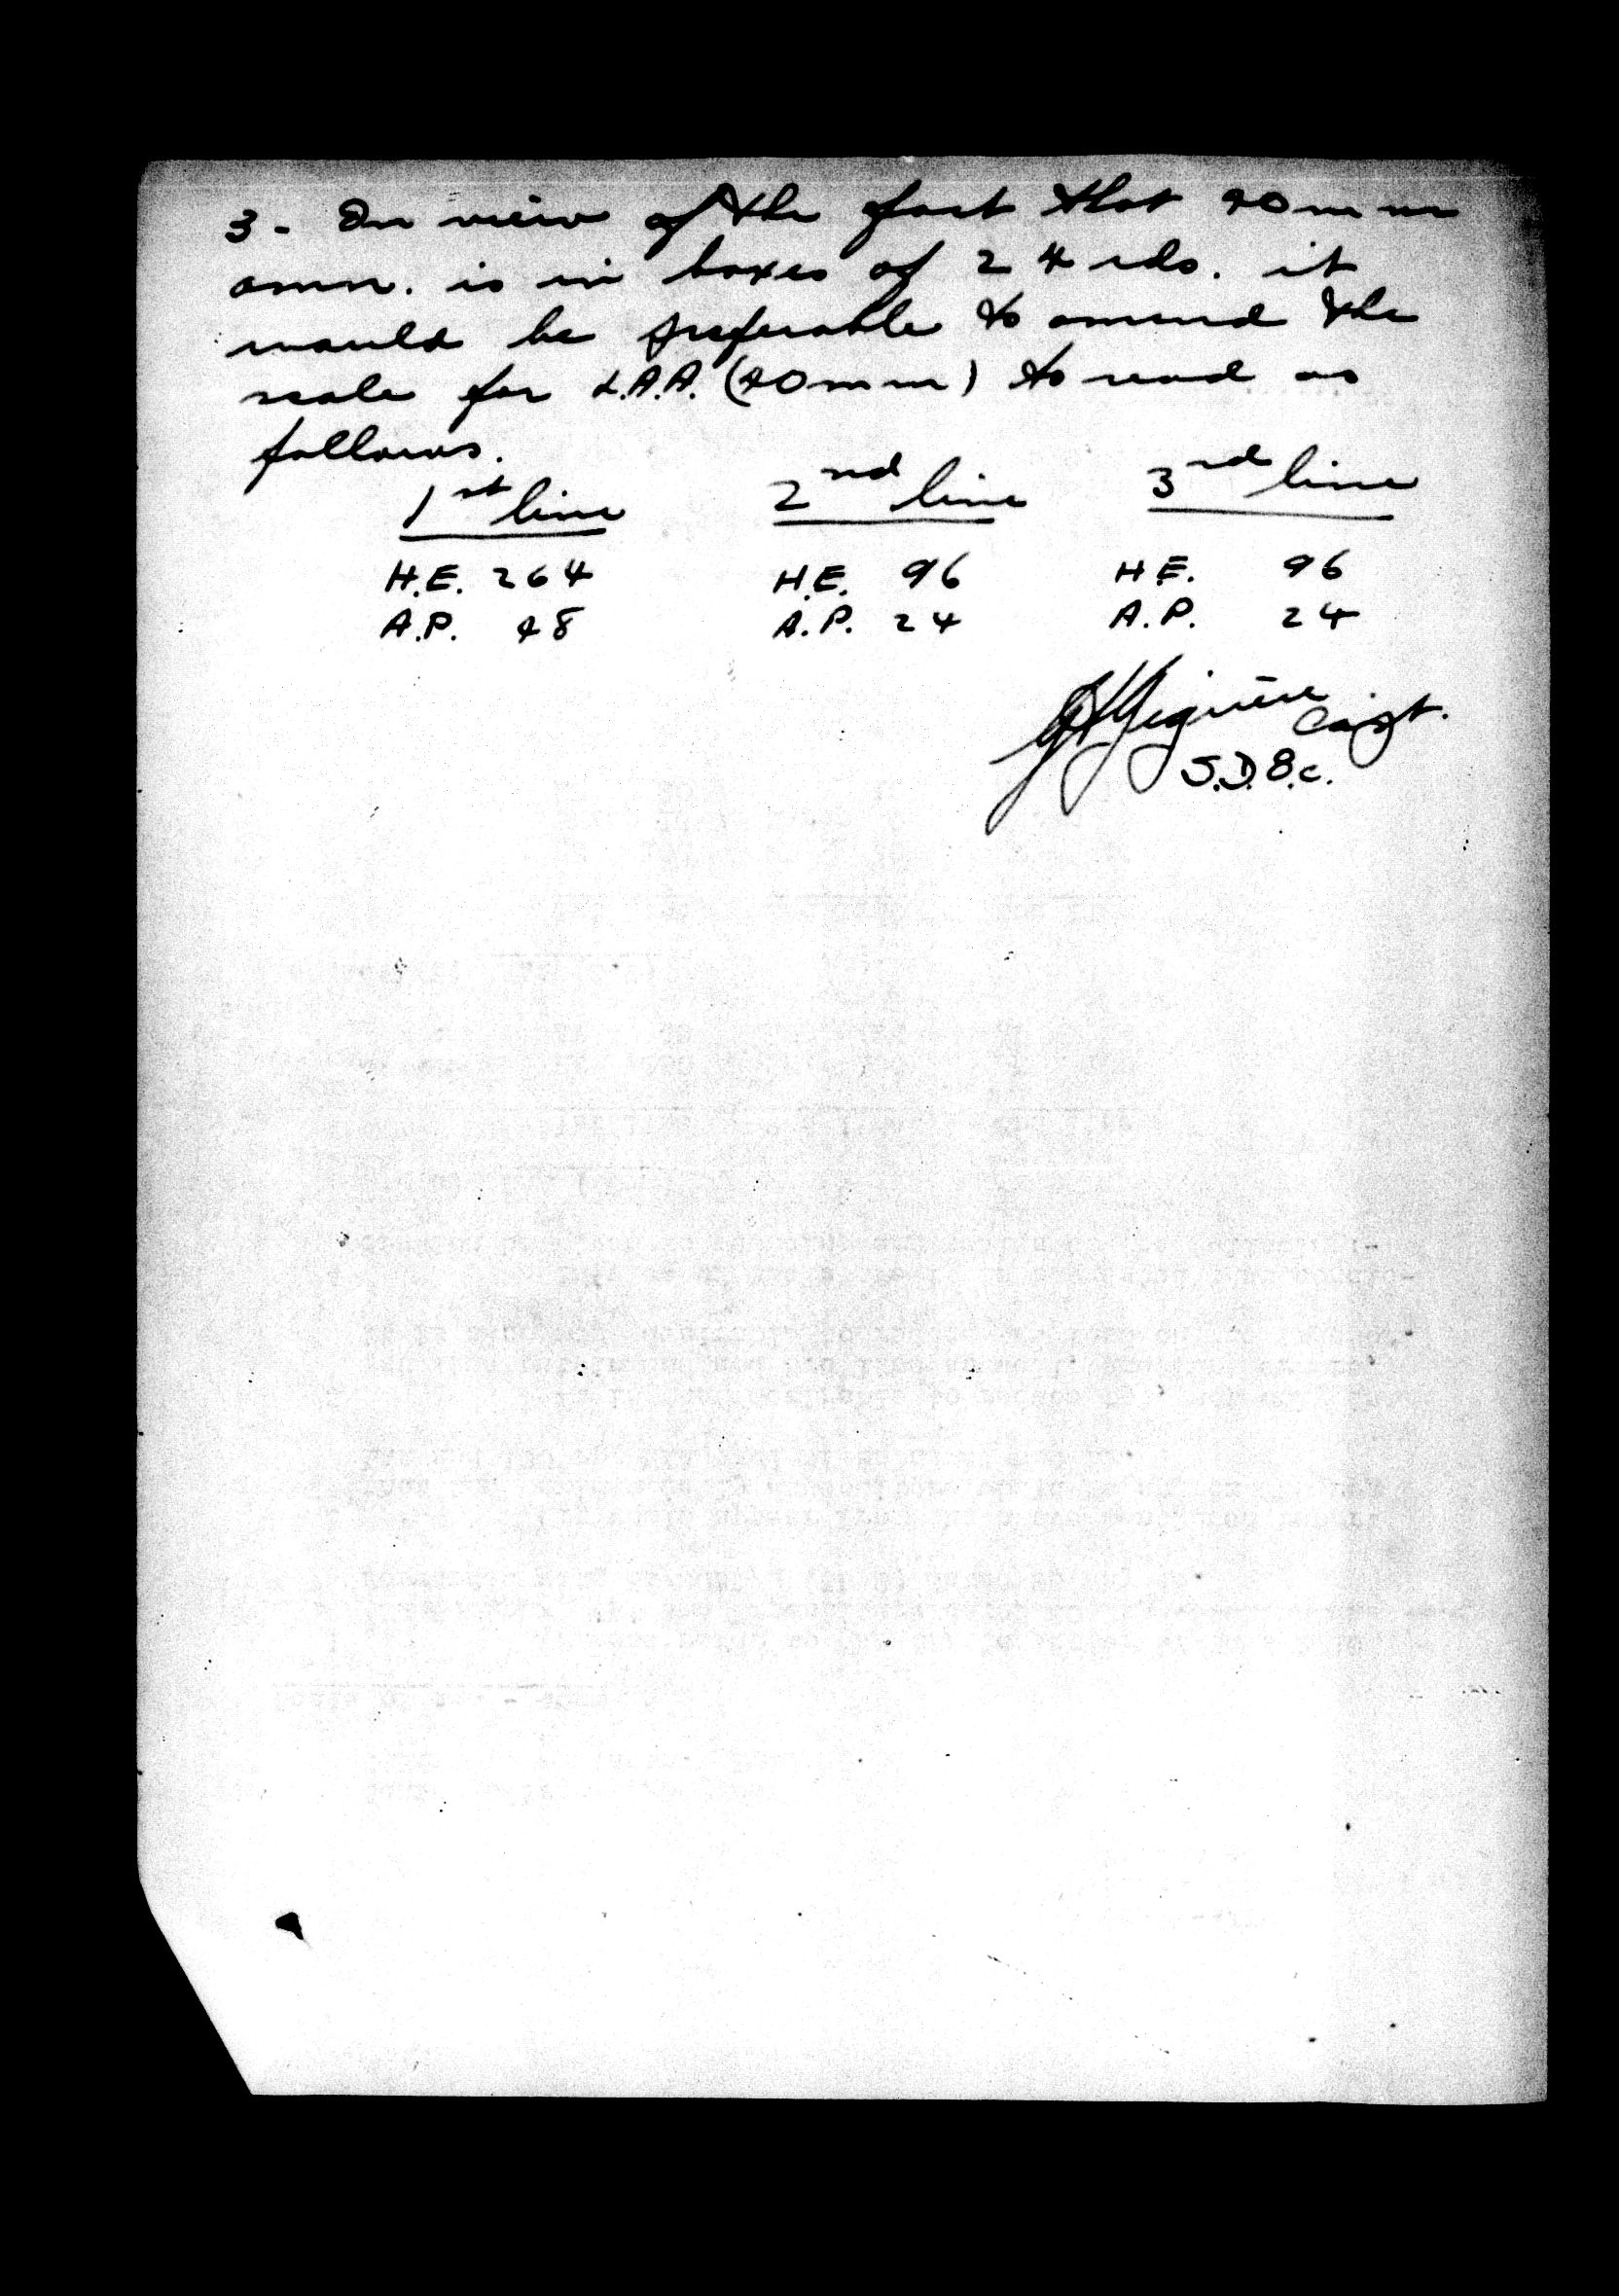 3 - In view of the fact that 40 mm
amn. is in boxes of 24 rds. it
would be preferable to amend the
scale for L.A.A. (40mm) to read as
follows.
1st line 2nd line 3rd line
H.E. 264 H.E. 96 H.E. 96
A.P. 48 A.P. 24 A.P. 24
Giguère Capt.
S.D.8.c.